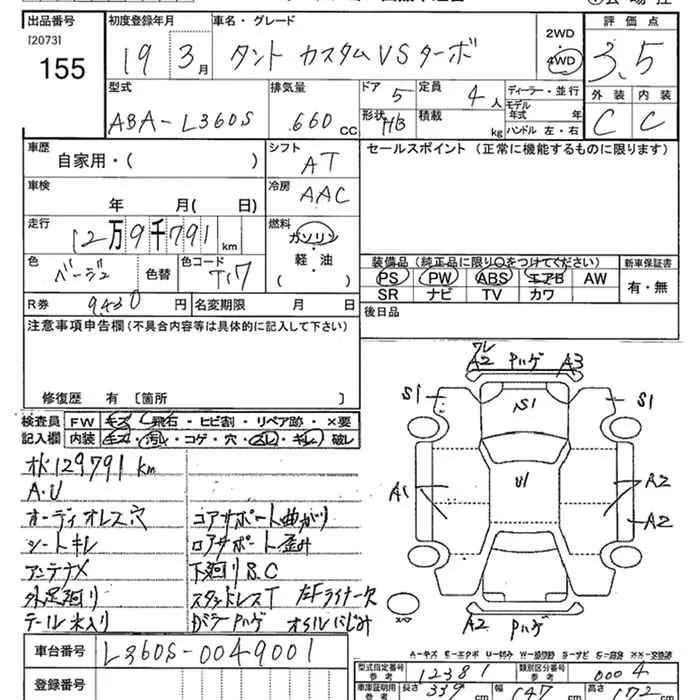 出品番号 初度登録年月 車名・グレード 2WD 評価点
[2073] 155 19 3月 タント カスタムVSターボ 4WD 3.5
型式 排気量 ドア 定員 ディーラー・並行 外装 内装
ABA-L360S .660 CC 5 4人 モデル年式 年 C C
形状 HB 積載 kg ハンドル 左・右
車歴 自家用・( ) シフト AT セールスポイント (正常に機能するものに限ります)
車検 年 月( 日) 冷房 AAC
走行 12万9千791km 燃料 ガソリン・軽・油 ( )
色 ベージュ 色替 色コード T17
装備品 (純正品に限り○をつけてください) 新車保証書
PS PW ABS エアB AW 有・無
SR ナビ TV カワ
R券 9430円 名変期限 月 日 後日品
注意事項申告欄 (不具合内容等は具体的に記入して下さい)
修復歴 有 [箇所
A2 ハゲ A3
S1 S1 S1
A1 U1 A2
A2
A2 ハゲ
検査員 FW キズ・飛石・ヒビ割・リペア跡・×要
記入欄 内装 キズ・汚レ・コゲ・穴・スレ・キレ・破レ
129791km
A.U
オーディオレス穴 コアサポート曲がり
シートキレ ロアサポート歪み
アンテナ× 下廻りS.C
外足廻り スタッドレスT 左Fライナー欠
テール水入り ガラーハゲ オイルにじみ
車台番号 L360S-0049001
登録番号
型式指定番号 参考 12381 類別区分番号 参考 0004
車庫証明用 参考 長さ 339cm 幅 147cm 高さ 172cm